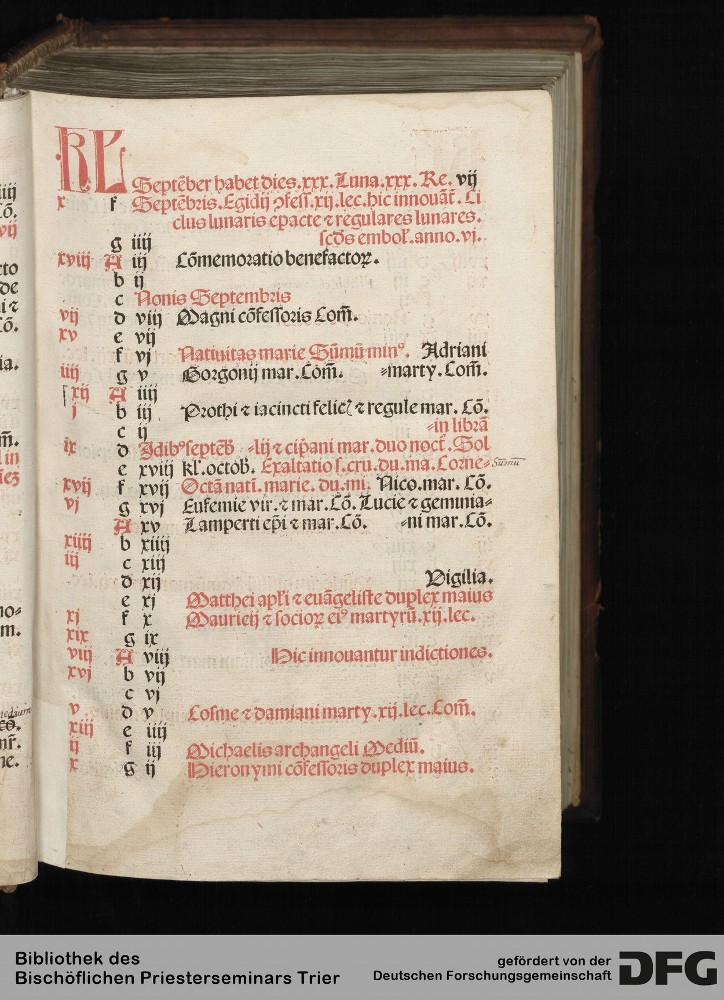 KL
Septēber habet dies.xxx.Luna.xxx.Re.vij
x f Septēbris.Egidij ꝯfess.xij.lec.hic innouāt̄.Ci
clus lunaris epacte ⁊ regulares lunares.
g iiij scd̄s embol̓.anno.vj.
xviij A iij Cōmemoratio benefactoꝝ.
b ij
c Nonis Septembris
vij d viij Magni cōfessoris Com̄.
xv e vij
f vj Nativitas marie Sūmū minꝰ. Adriani
iiij g v Gorgonij mar.Com̄. =marty.Com̄.
xij A iiij
j b iij Prothi ⁊ iacincti felic̄ ⁊ regule mar. Cō.
c ij =in librā
ix d Idibꝰ septēb̄ =lij ⁊ cip̄ani mar.duo noct̄.Sol
e xviij kl̓.octob̄. Exaltatio s.cru.du.ma.Corne= Sūmū
xvij f xvij Octā nati̅.marie.du.mi. Nico.mar.Cō.
vj g xvj Eufemie vir.⁊ mar.Cō.Lucie ⁊ geminia=
A xv Lamperti ep̄i ⁊ mar.Cō. =ni mar.Cō.
xiiij b xiiij
iij c xiij
d xij Vigilia.
e xj Matthei apl̓i ⁊ euāgeliste duplex maius
xj f x Mauricij ⁊ socioꝝ eiꝰ martyrū.xij.lec.
xix g ix
viij A viij Hic innouantur indictiones.
xvj b vij
c vj
v d v Cosme ⁊ damiani marty.xij.lec.Com̄.
xiij e iiij
ij f iij Michaelis archangeli Mediū.
x g ij Hieronymi cōfessoris duplex maius.
Bibliothek des
Bischöflichen Priesterseminars Trier
gefördert von der
Deutschen Forschungsgemeinschaft DFG